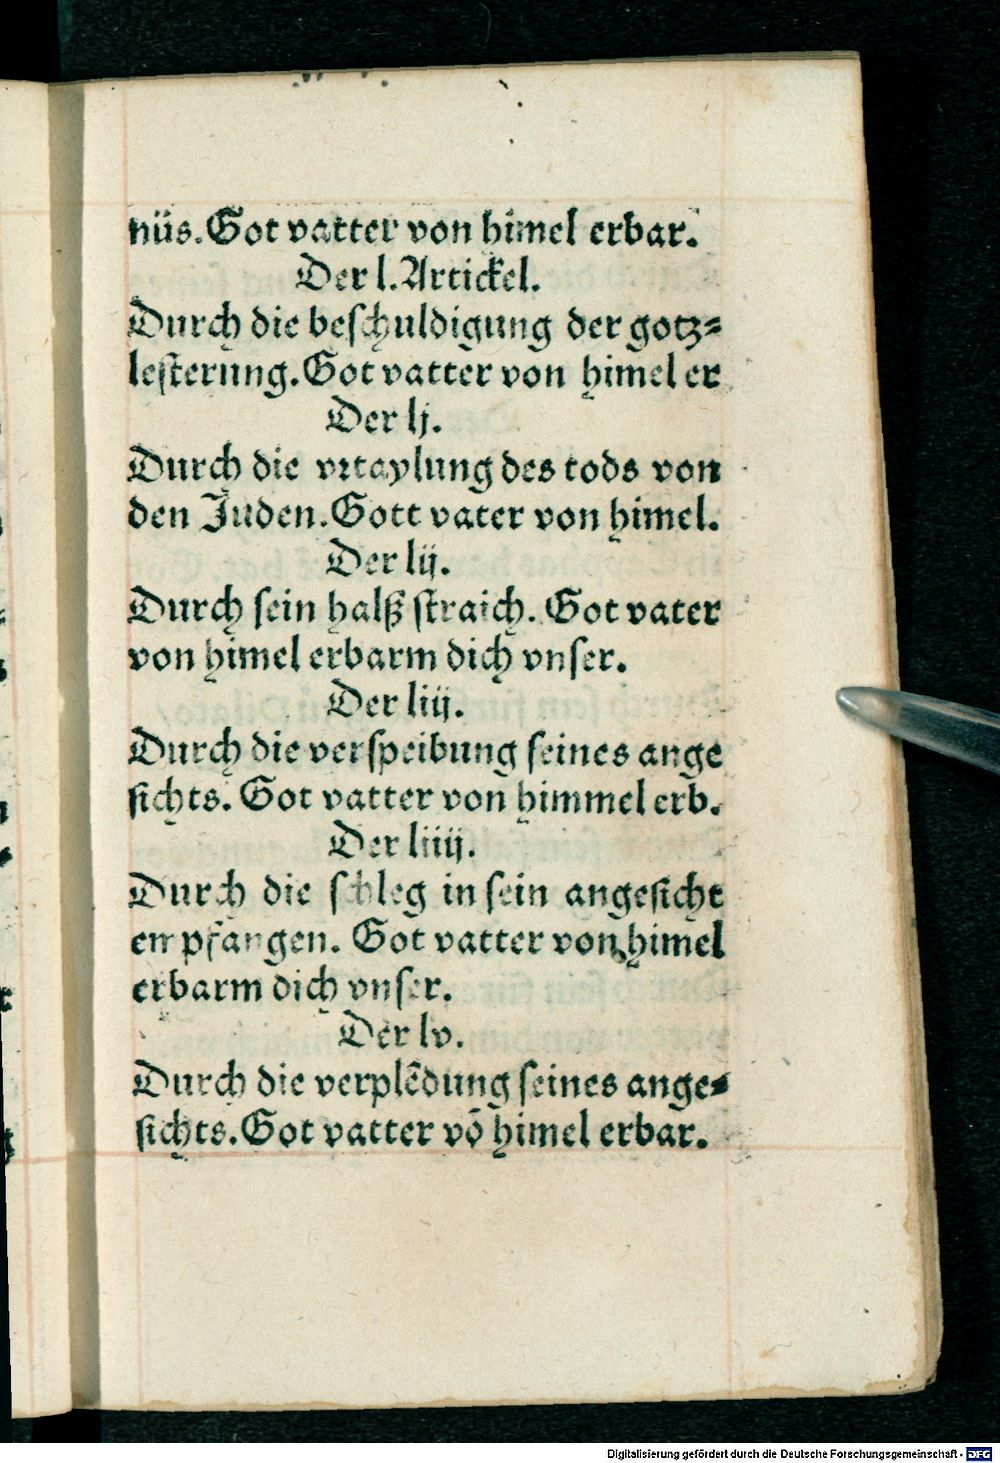 nüs. Got vatter von himel erbar.
Der l. Artickel.
Durch die beſchuldigung der gotz⸗
leſterung. Got vatter von himel er
Der lj.
Durch die vrtaylung des tods von
den Juden. Gott vater von himel.
Der lij.
Durch ſein halß ſtraich. Got vater
von himel erbarm dich vnſer.
Der liij.
Durch die verſpeibung ſeines ange
ſichts. Got vatter von himmel erb.
Der liiij.
Durch die ſchleg in ſein angeſicht
empfangen. Got vatter von himel
erbarm dich vnſer.
Der lv.
Durch die verplēdung ſeines ange⸗
ſichts. Got vatter vō himel erbar.
Digitalisierung gefördert durch die Deutsche Forschungsgemeinschaft - DFG